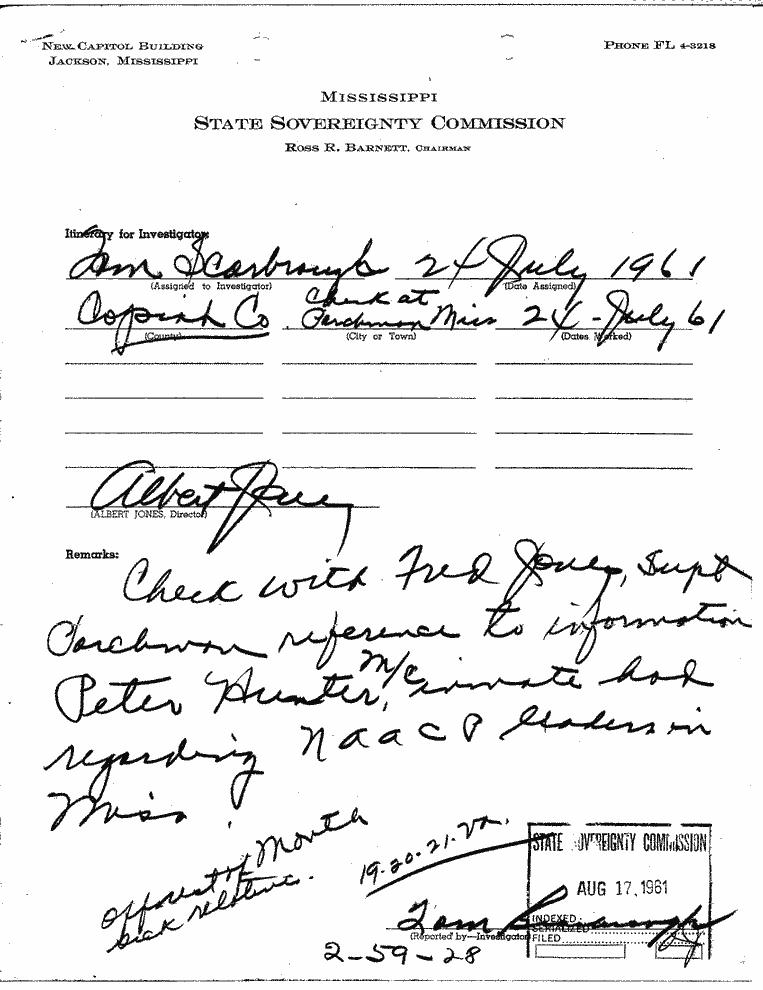 NEW CAPITOL BUILDING
JACKSON, MISSISSIPPI
PHONE FL 4-3218
MISSISSIPPI
STATE SOVEREIGNTY COMMISSION
ROSS R. BARNETT, CHAIRMAN
Itinerary for Investigator:
Tom Scarbrough 24 July 1961
(Assigned to Investigator) (Date Assigned)
Copiah Co Check at
Parchman Miss 24-July 61
(County) (City or Town) (Dates Worked)
Albert Jones
(ALBERT JONES, Director)
Remarks:
Check with Fred Jones, Supt
Parchman reference to information
Peter Hunter, m/c inmate had
regarding NAACP leaders in
Miss.
off rest of Month
sick relative.
19-20-21-Va.
STATE SOVEREIGNTY COMMISSION
AUG 17, 1961
INDEXED
SERIALIZED
FILED
Tom Scarbrough
(Reported by—Investigator)
2-59-28